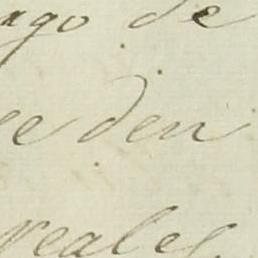 ago de
se den
reales